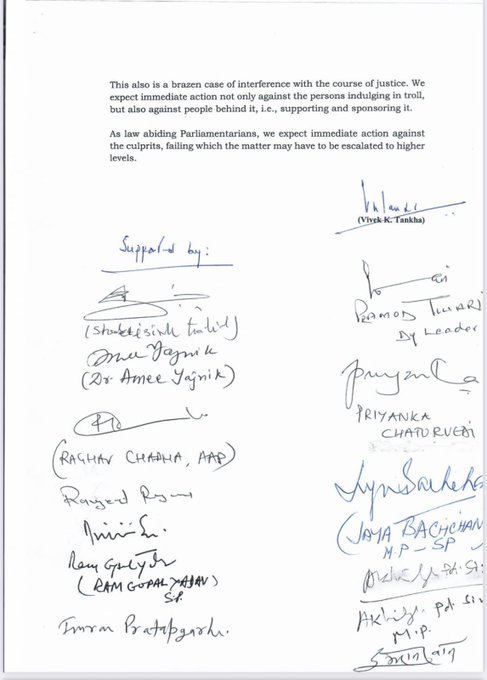 This also is a brazen case of interference with the course of justice. We
expect immediate action not only against the persons indulging in troll,
but also against people behind it, i.e., supporting and sponsoring it.
As law abiding Parliamentarians, we expect immediate action against
the culprits, failing which the matter may have to be escalated to higher
levels.
(Vivek K. Tankha)
Supported by:
Amee Yajnik
(Dr Amee Yajnik)
(RAGHAV CHADHA, AAP)
Ranjeet
Ram Gopal
(RAM GOPAL YADAV)
S.P.
Imran Pratapgarhi.
PRAMOD TIWARI
Dy Leader
Priyanka
PRIYANKA
CHATURVEDI
(JAYA BACHCHAN
M.P - SP
Akhilesh Pd. Si
M.P.